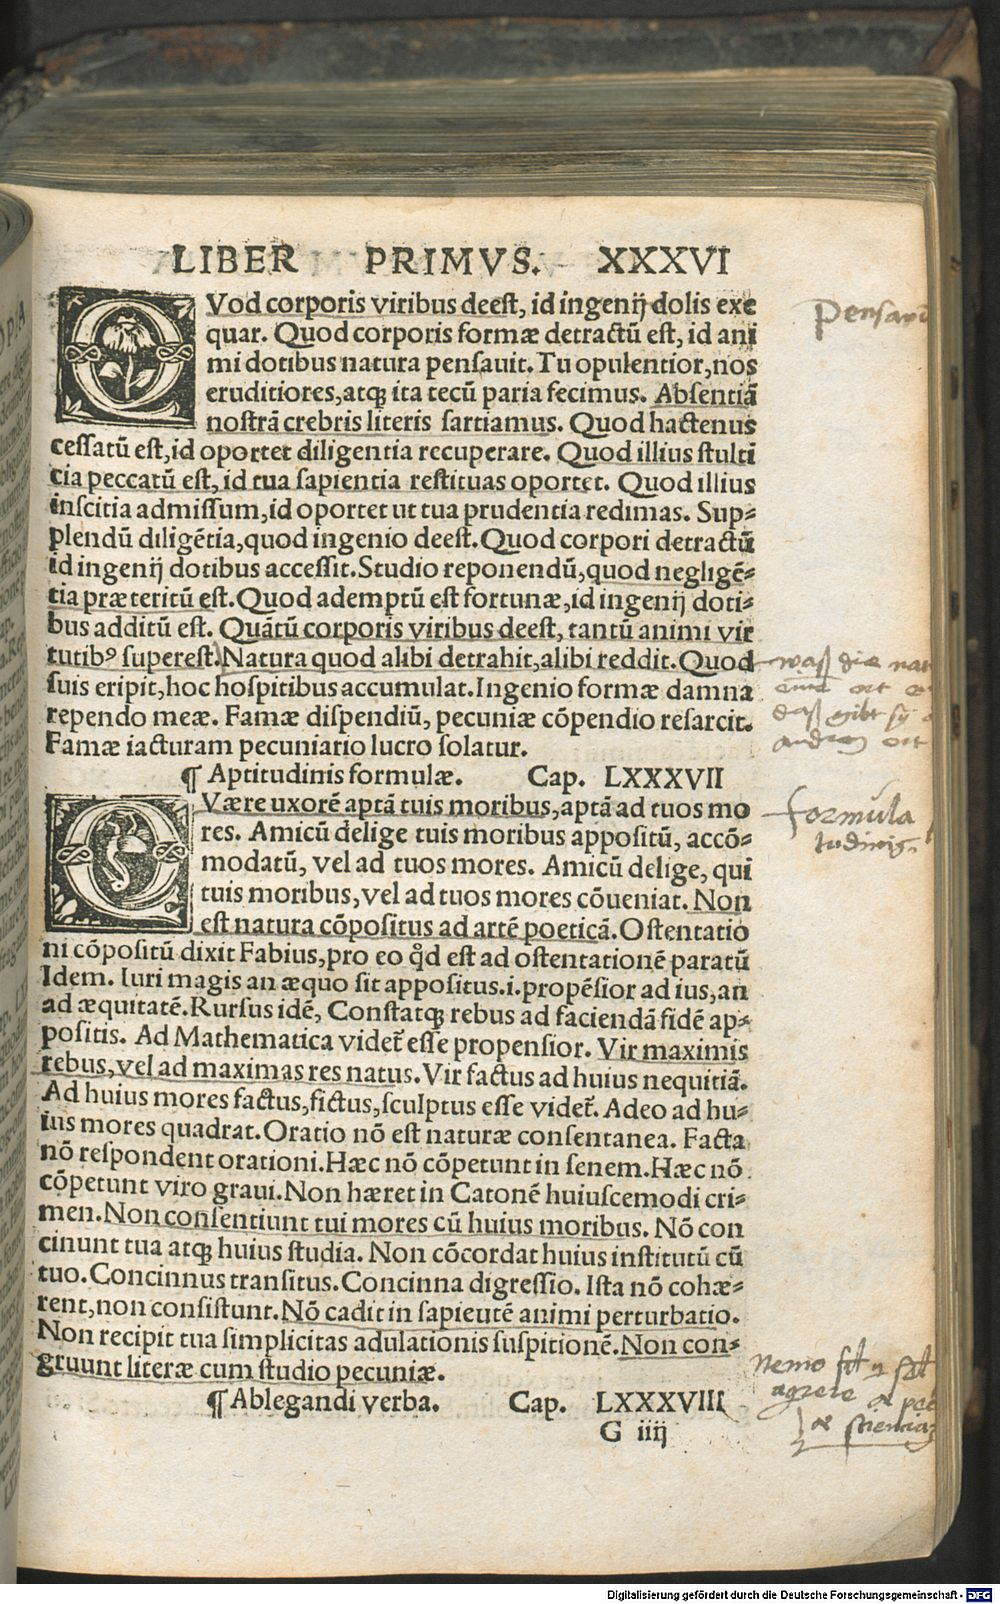 LIBER PRIMVS. XXXVI
QVod corporis viribus deest, id ingenij dolis exe
quar. Quod corporis formæ detractũ est, id ani
mi dotibus natura pensauit. Tu opulentior, nos
eruditiores, atqꝫ ita tecũ paria fecimus. Absentiã
nostrã crebris literis sartiamus. Quod hactenus
cessatũ est, id oportet diligentia recuperare. Quod illius stulti
cia peccatũ est, id tua sapientia restituas oportet. Quod illius
inscitia admissum, id oportet ut tua prudentia redimas. Sup⸗
plendũ diligẽtia, quod ingenio deest. Quod corpori detractũ
id ingenij dotibus accessit. Studio reponendũ, quod negligẽ⸗
tia præteritũ est. Quod ademptũ est fortunæ, id ingenij doti⸗
bus additũ est. Quãtũ corporis viribus deest, tantũ animi vir
tutibꝰ superest. Natura quod alibi detrahit, alibi reddit. Quod
suis eripit, hoc hospitibus accumulat. Ingenio formæ damna
rependo meæ. Famæ dispendiũ, pecuniæ cõpendio resarcit.
Famæ iacturam pecuniario lucro solatur.
¶ Aptitudinis formulæ. Cap. LXXXVII
QVære uxorẽ aptã tuis moribus, aptã ad tuos mo
res. Amicũ delige tuis moribus appositũ, accõ⸗
modatũ, vel ad tuos mores. Amicũ delige, qui
tuis moribus, vel ad tuos mores cõueniat. Non
est natura cõpositus ad artẽ poeticã. Ostentatio
ni cõpositũ dixit Fabius, pro eo qd̓ est ad ostentationẽ paratũ
Idem. Iuri magis an æquo sit appositus .i. propẽsior ad ius, an
ad æquitatẽ. Rursus idẽ, Constatqꝫ rebus ad faciendã fidẽ ap⸗
positis. Ad Mathematica videt̃ esse propensior. Vir maximis
rebus, vel ad maximas res natus. Vir factus ad huius nequitiã.
Ad huius mores factus, fictus, sculptus esse videt̃. Adeo ad hu⸗
ius mores quadrat. Oratio nõ est naturæ consentanea. Facta
nõ respondent orationi. Hæc nõ cõpetunt in senem. Hæc nõ
cõpetunt viro graui. Non hæret in Catonẽ huiuscemodi cri⸗
men. Non consentiunt tui mores cũ huius moribus. Nõ con
cinunt tua atqꝫ huius studia. Non cõcordat huius institutũ cũ
tuo. Concinnus transitus. Concinna digressio. Ista nõ cohæ⸗
rent, non consistunt. Nõ cadit in sapieutẽ animi perturbatio.
Non recipit tua simplicitas adulationis suspitionẽ. Non con⸗
gruunt literæ cum studio pecuniæ.
¶ Ablegandi verba. Cap. LXXXVIII
G iiij
waß die nat
ort
daß gibt sy
andren ort
formula
nemo
agrere
Digitalisierung gefördert durch die Deutsche Forschungsgemeinschaft - DFG